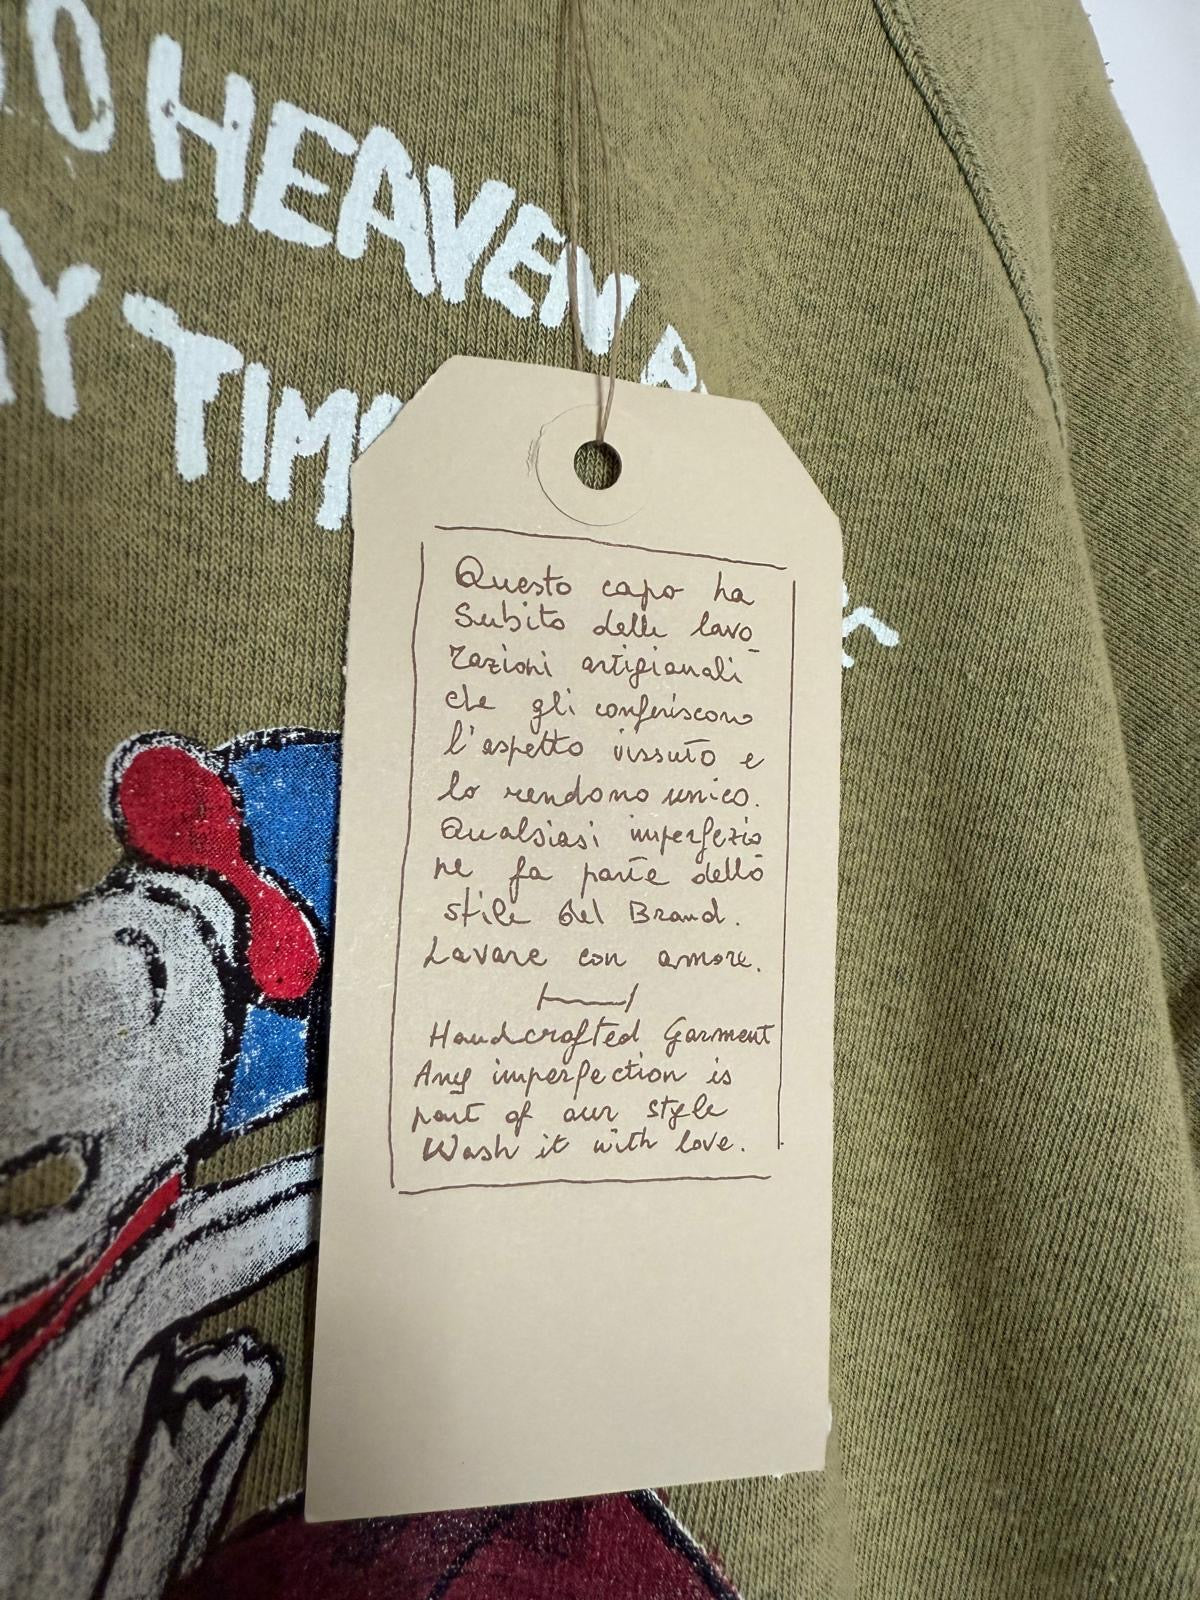 O HEAVEN
Y TIM
Questo capo ha
Subito delle lavo
razioni artigianali
che gli conferiscono
l'aspetto vissuto e
lo rendono unico.
Qualsiasi imperfezio
ne fa parte dello
stile del Brand.
Lavare con amore.
Handcrafted Garment
Any imperfection is
part of our style
Wash it with love.